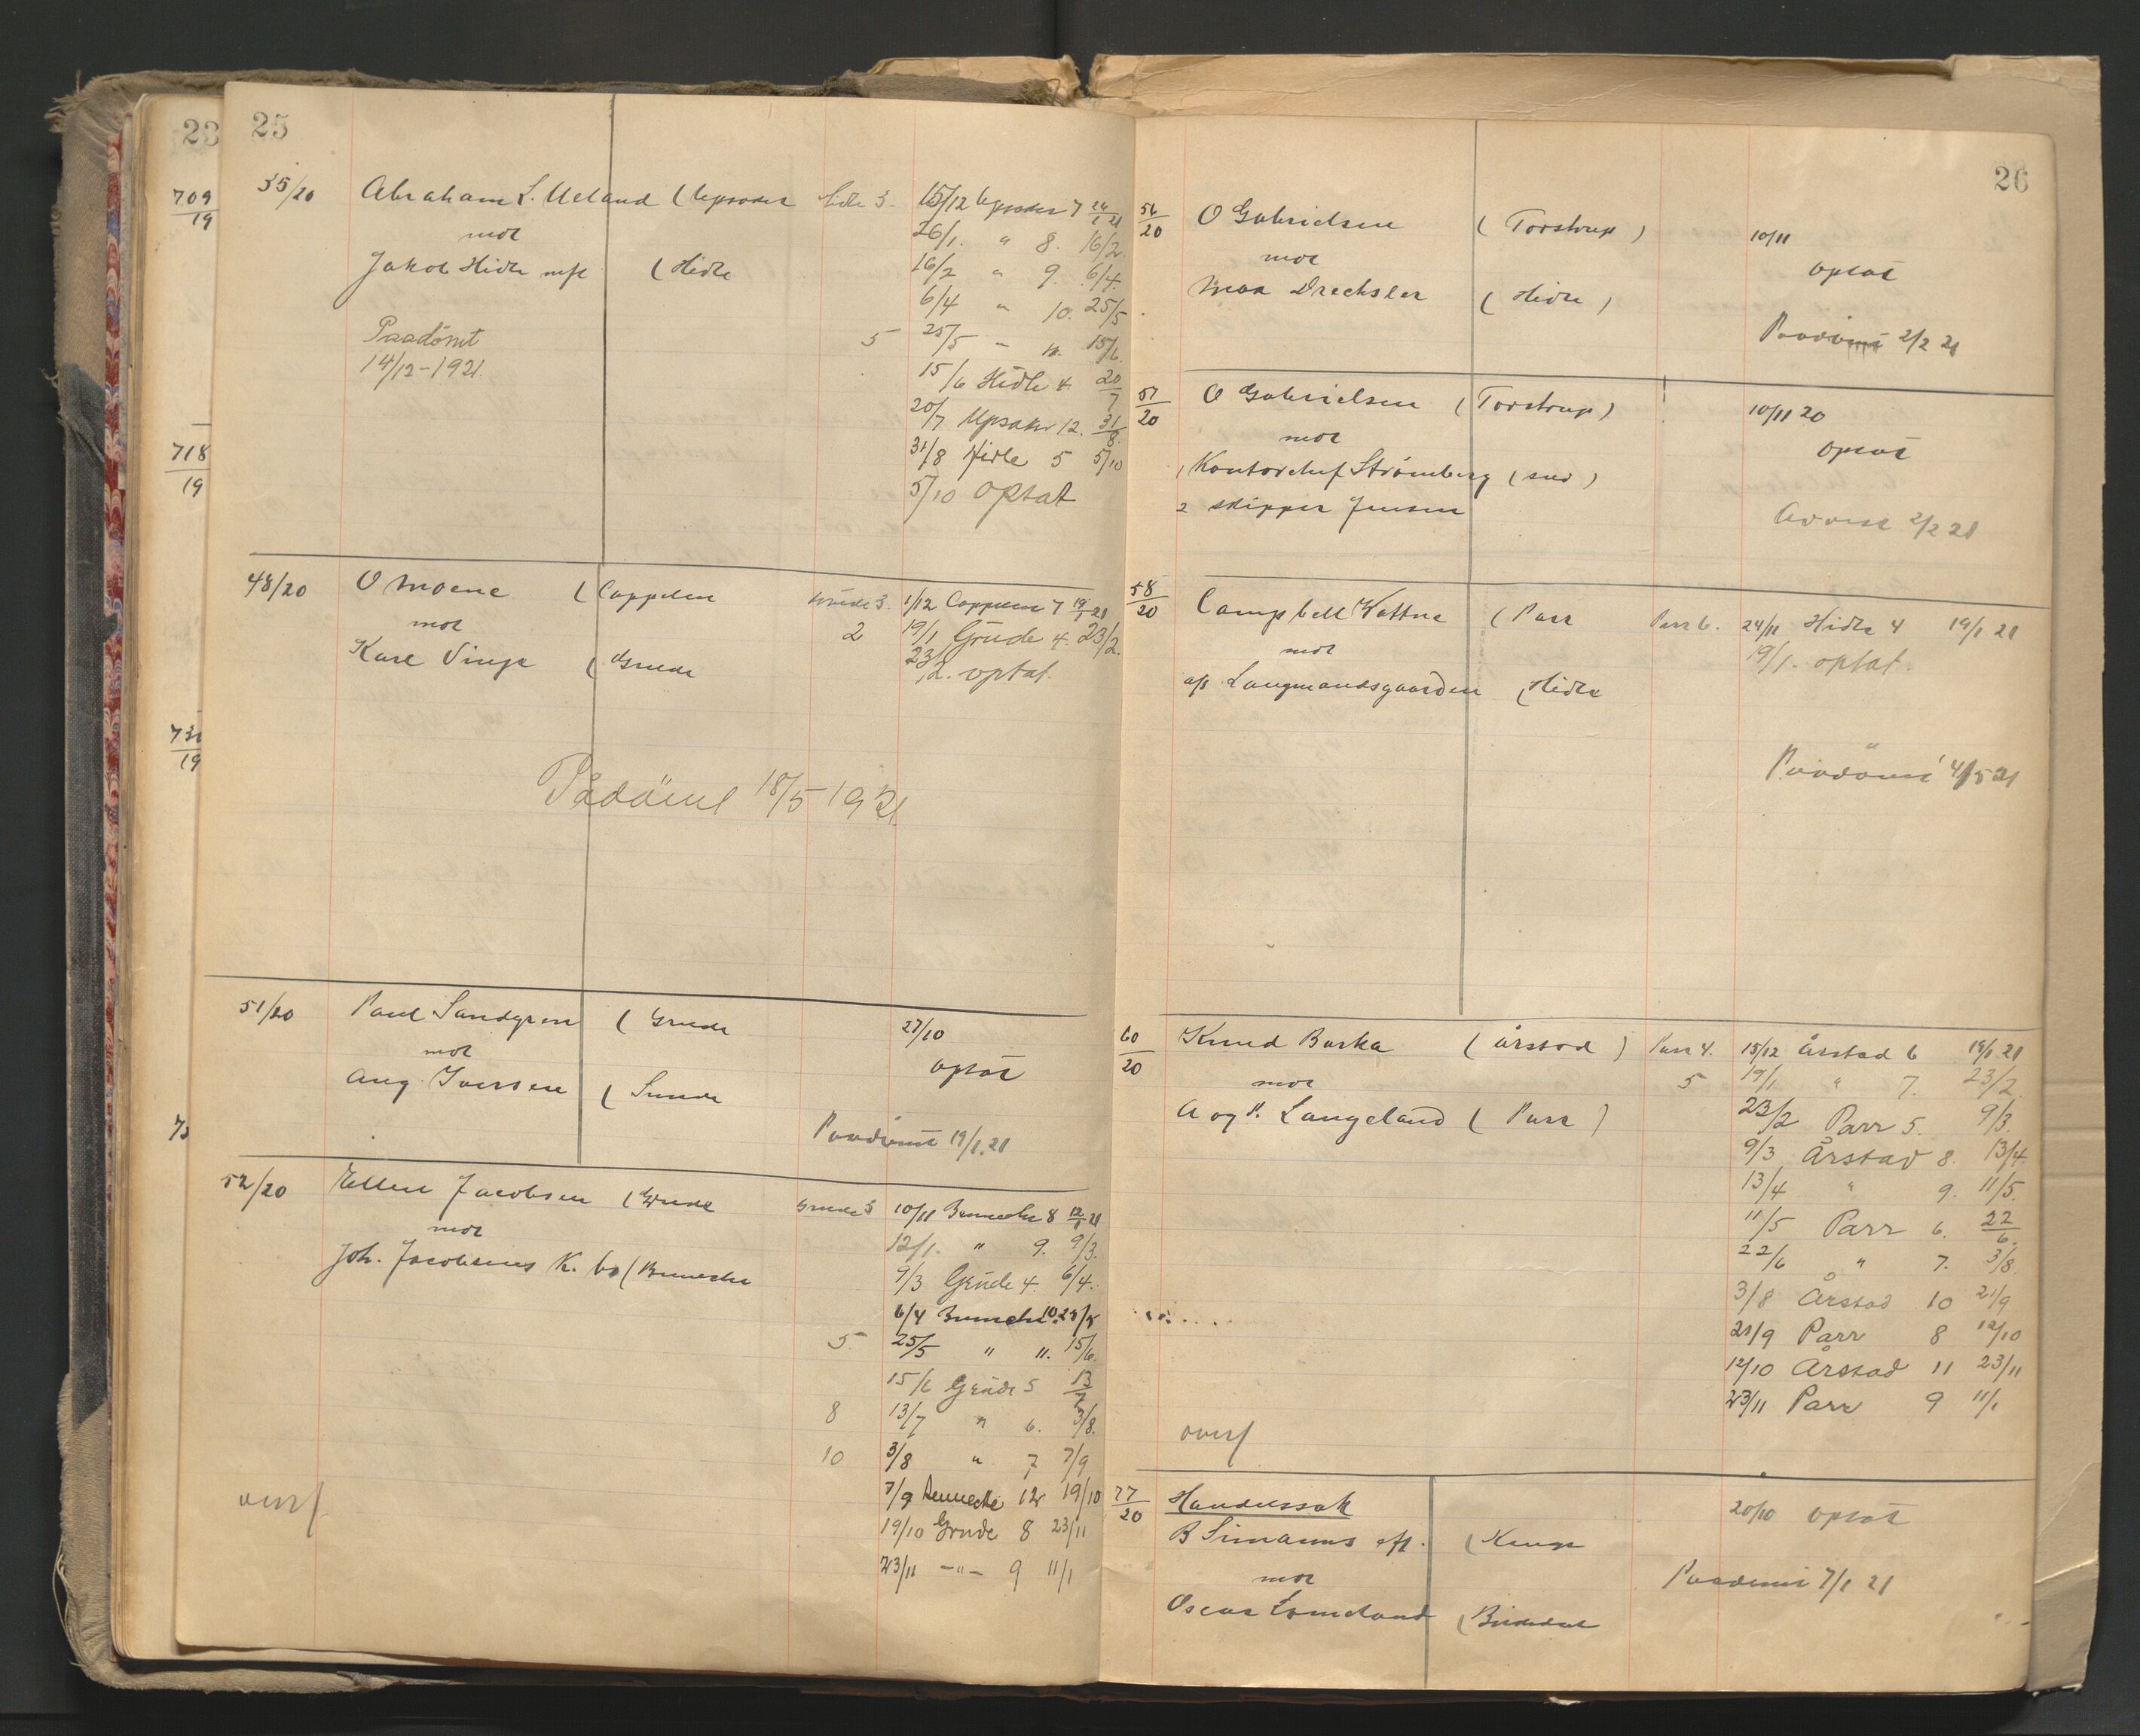 23
709
19
718
19
19
25
35/20 Abraham L. Ueland (Upsaker Hidle 3. 15/12 Upsaker 7 26/1 21
mot 26/1. " 8. 16/2.
Jakob Hidle mfl (Hidle 16/2 " 9. 6/4.
6/4 " 10. 25/5
Paadömt 5 25/5 " 11. 15/6.
14/12-1921. 15/6 Hidle 4. 20/7
20/7 Upsaker 12. 31/8.
31/8 Hidle 5 5/10
5/10 optat
48/20 O Moene (Coppelen Grude 3. 1/12 Coppelen 7 19/1 21
mot 2 19/1 Grude 4. 23/2.
Karl Vinje (Grude 23/2. optat.
Pådömt 18/5 1921.
51/20 Paul Sandgren (Grude 27/10
mot optat
Aug. Iversen (Sunde
Paadömt 19/1.21
52/20 Ellen Jacobsen (Grude Grude 3 10/11 Benneche 8 12/1 21
mot 12/1. " 9. 9/3.
Joh. Jacobsens K. bo (Benneche 9/3 Grude 4. 6/4.
6/4 Bennche 10. 25/5
5. 25/5 " 11. 15/6.
15/6 Grude 5 13/7
8 13/7 " 6. 3/8.
10 3/8 " 7 7/9
7/9 Benneche 12 19/10
overf 19/10 Grude 8 23/11
23/11 -"- 9 11/1
26
56/20 O Gabrielsen (Torstrup) 10/11
mot optat
Max Drechsler (Hidle)
Paadömt 2/2 21
57/20 O Gabrielsen (Torstrup) 10/11 20
mot optat
1 Kontorchef Strömberg (svd)
2 skipper Jensen Avvist 2/2 21
58/20 Campbell Wattne (Parr Parr 6. 24/11 Hidle 4 19/1 21
mot 19/1. optat.
a/s Langmandsgaarden (Hidle
Paadömt 4/5 21
60/20 Knud Barka (Årstad) Parr 4. 15/12 Årstad 6 19/1 21
mot 5 19/1 " 7. 23/2
A og P. Langeland (Parr) 23/2 Parr 5. 9/3.
9/3 Årstad 8. 13/4.
13/4 " 9. 11/5.
11/5 Parr 6. 22/6.
22/6 " 7. 3/8.
3/8 Årstad 10 21/9
21/9 Parr 8 12/10
12/10 Årstad 11 23/11
23/11 Parr 9 11/1
overf
77/20 Handelssak 20/10 optat
B Simanns eft. (Kluge
mot Paadömt 7/1 21
Oscar Lomeland (Birkedal